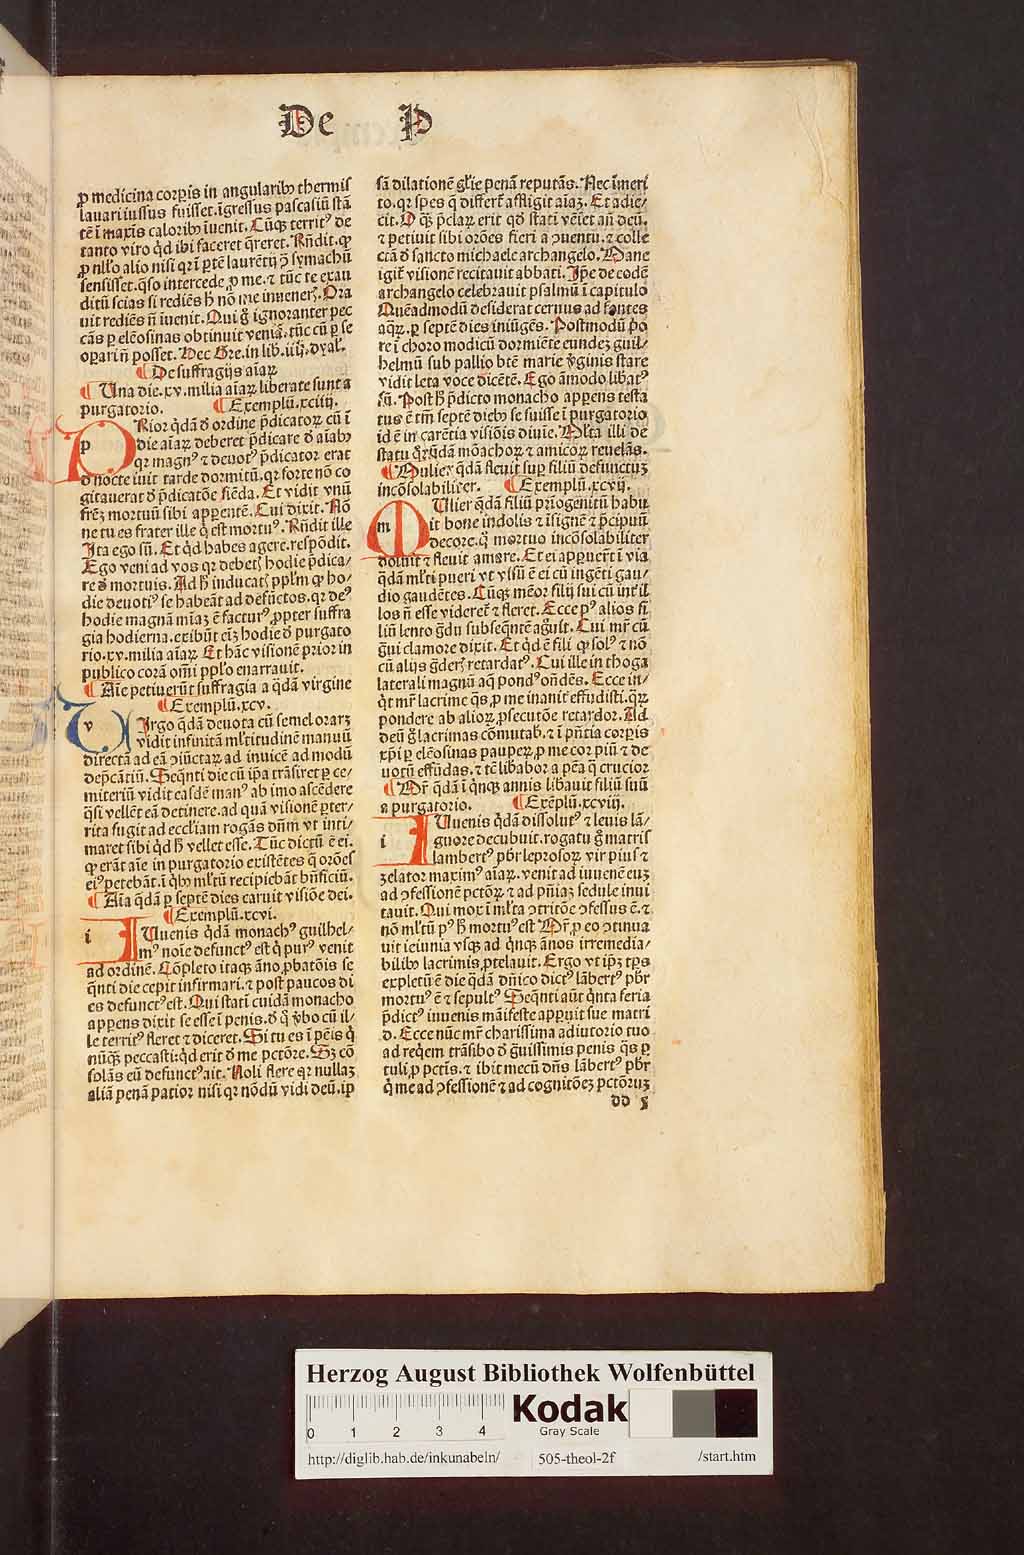 De P
ꝓ medicina corꝑis in angularibꝰ thermis
lauari iussus fuisset. īgressus pascasiū stā
tē ī maxīs caloribꝰ īuenit. Cūqꝫ territꝰ de
tanto viro qͥd ibi faceret q̄reret. Rn̄dit. ꝙ
ꝓ nll'o alio nisi qꝛ ī ꝑtē laurētij ɔ̄ symachū
sensisset. q̄so intercede ꝓ me. ⁊ tūc te exau
ditū scias si rediēs h̄ nō me inueneꝝ. Ora
uit rediēs n̄ īuenit. Qui g̊ ignoranter pec
cās ꝑ elēosinas obtinuit veniā. tūc cū ꝑ se
oꝑari n̄ posset. Hec Gre. in lib. iiij. dyal'.
¶ De suffragijs aīaꝝ
¶ Una die. xv. milia aīaꝝ liberate sunt a
purgatorio. ¶ Exemplū. xciiij.
p Rior qͥdā ꝺ ordine p̄dicatoꝝ cū ī
die aīaꝝ deberet p̄dicare ꝺ aīabꝰ
qꝛ magnꝰ ⁊ deuotꝰ p̄dicator erat
ꝺ nocte iuit tarde dormitū. qꝛ forte nō co
gitauerat ꝺ p̄dicatōe fiēda. Et vidit vnū
frēꝫ mortuū sibi apꝑentē. Cui dixit. Nō
ne tu es frater ille qͥ est mortuꝰ. Rn̄dit ille
Ita ego sū. Et qͥd habes agere. respōdit.
Ego veni ad vos qꝛ debetꝫ hodie p̄dica/
re ꝺ mortuis. Ad h̄ inducatꝫ ppl'm ꝙ ho/
die deuotiꝰ se habeāt ad defūctos. qꝛ deꝰ
hodie magnā mīaꝫ ē facturꝰ ꝓpter suffra
gia hodierna. exibūt em̄ hodie ꝺ purgato
rio. xv. milia aīaꝝ. Et hāc visionē prior in
publico corā om̄i ppl'o enarrauit.
¶ Aīe petiuerūt suffragia a qͣdā virgine
¶ Exemplū. xcv.
v Irgo qͣdā deuota cū semel oraꝝ
vidit infinitā ml'titudinē manuū
directā ad eā ɔiūctaꝝ ad inuicē ad modū
dep̄cātiū. Seq̄nti die cū ip̄a trāsiret ꝑ ce/
miteriū vidit easdē manꝰ ab imo ascēdere
qͣsi vellēt eā detinere. ad quā visionē ꝑter/
rita fugit ad eccl'iam rogās dn̄m vt inti/
maret sibi qͥd h̄ vellet esse. Tūc dictū ē ei.
ꝙ erāt aīe in purgatorio existētes q̄ orōes
eiꝰ petebāt. ī qͥbꝰ ml'tū recipiebāt bn̄ficiū.
¶ Aīa qͣdā ꝑ septē dies caruit visiōe dei.
¶ Exemplū. xcvi.
i Uuenis qͥdā monachꝰ guilhel/
mꝰ noīe defunctꝰ est qͥ purꝰ venit
ad ordinē. Cōpleto itaqꝫ āno ꝓbatōis se
q̄nti die cepit infirmari. ⁊ post paucos di
es defunctꝰ est. Qui stati cuidā monacho
apꝑens dixit se esse ī penis. ꝺ qͦ ꝟbo cū il/
le territꝰ fleret ⁊ diceret. Si tu es ī pēis qͥ
nūqͣꝫ peccasti: qͥd erit ꝺ me pctōre. Sꝫ cō
solās eū defunctꝰ ait. Noli flere qꝛ nullaꝫ
aliā penā patior nisi qꝛ nōdū vidi deū. ip
sā dilationē gl'ie penā reputās. Nec īmeri
to. qꝛ spes q̄ differt̄ affligit aīaꝫ. Et adie/
cit. O qͣꝫ p̄claꝝ erit qͦd stati vēiet an̄ deū.
⁊ petiuit sibi orōes fieri a ɔuentu. ⁊ colle
ctā ꝺ sancto michaele archangelo. Mane
igit̄ visionē recitauit abbati. Ip̄e de eodē
archangelo celebrauit psalmū ī capitulo
Quēadmodū desiderat ceruus ad fontes
aqͣꝝ. ꝑ septē dies iniūgēs. Postmodū p̄o
re ī choro modicū dormiēte eundeꝫ guil/
helmū sub pallio btē marie ꝟginis stare
vidit leta voce dicētē. Ego āmodo libatꝰ
sū. Post h̄ p̄dicto monacho apꝑens testa
tus ē tm̄ septē diebꝰ se fuisse ī purgatorio
id ē in carētia visiōis diuīe. Ml'ta illi de
statu qͦrūdā mōachoꝝ ⁊ amicoꝝ reuelās.
¶ Mulier qͣdā fleuit suꝑ filiū defunctuꝫ
incōsolabiliter. ¶ Exemplū. xcvij.
m Ulier qͣdā filiū prīogenitū habu
it bone indolis ⁊ īsignē ⁊ p̄cipuū
decore. qͦ mortuo incōsolabiliter
doluit ⁊ fleuit amare. Et ei apꝑuert̄ ī via
qͣdā ml'ti pueri vt visū ē ei cū ingēti gau/
dio gaudētes. Cūqꝫ mēor filij sui cū int̄ il
los n̄ esse videret̄ ⁊ fleret. Ecce pꝰ alios fi
liū lento g̊du subseq̄ntē aǧuit. Cui mr̄ cū
g̊ui clamore dixit. Et qͥd ē fili qͥ solꝰ ⁊ nō
cū alijs g̊derꝫ retardatꝰ. Cui ille in thoga
laterali magnū aq̄ pondꝰ oñdēs. Ecce in/
qͥt mr̄ lacrime qͣs ꝓ me inanit̄ effudisti. qͣꝝ
pondere ab alioꝝ ꝓsecutōe retardor. Ad
deū g̊ lacrimas cōmutab. ⁊ ī pn̄tia corꝑis
xp̄i ꝑ elēosinas paupeꝝ ꝓ me cor piū ⁊ de
uotū effūdas. ⁊ tē libabor a pēa q̄ crucior
¶ Mr̄ qͣdā ī qͥnqꝫ annis libauit filiū suū
a purgatorio. ¶ Exēplū. xcviij.
i Uuenis qͥdā dissolutꝰ ⁊ leuis lā/
guore decubuit. rogatu g̊ matris
lambertꝰ pbr̄ leprosoꝝ vir pius ⁊
zelator maximꝰ aīaꝝ. venit ad iuuenē euꝫ
ad ɔfessionē pctōꝝ ⁊ ad pn̄iaꝫ sedule inui
tauit. Qui mox ī ml'ta ɔtritōe ɔfessus ē. ⁊
nō ml'tū pꝰ h̄ mortuꝰ est. Mr̄ ꝓ eo ɔtinua
uit ieiunia vsqꝫ ad qͥnqꝫ ānos irremedia/
bilibꝰ lacrimis ꝓtelauit. Ergo vt ip̄ꝫ tp̄s
expletū ē die qͣdā dn̄ico dictꝰ lābertꝰ pbr̄
mortuꝰ ē ⁊ sepultꝰ Seq̄nti aūt qͥnta feria
p̄dictꝰ iuuenis māifeste apꝑuit sue matri
d. Ecce nūc mr̄ charissima adiutorio tuo
ad req̄em trāsibo ꝺ g̊uissimis penis qͣs ꝑ
tuli ꝓ pctīs. ⁊ ibit mecū dn̄s lābertꝰ pbr̄
qͥ me ad ɔfessionē ⁊ ad cognitōeꝫ pctōruꝫ
dd
Herzog August Bibliothek Wolfenbüttel
0 1 2 3 4
Kodak
Gray Scale
http://diglib.hab.de/inkunabeln/ 505-theol-2f /start.htm